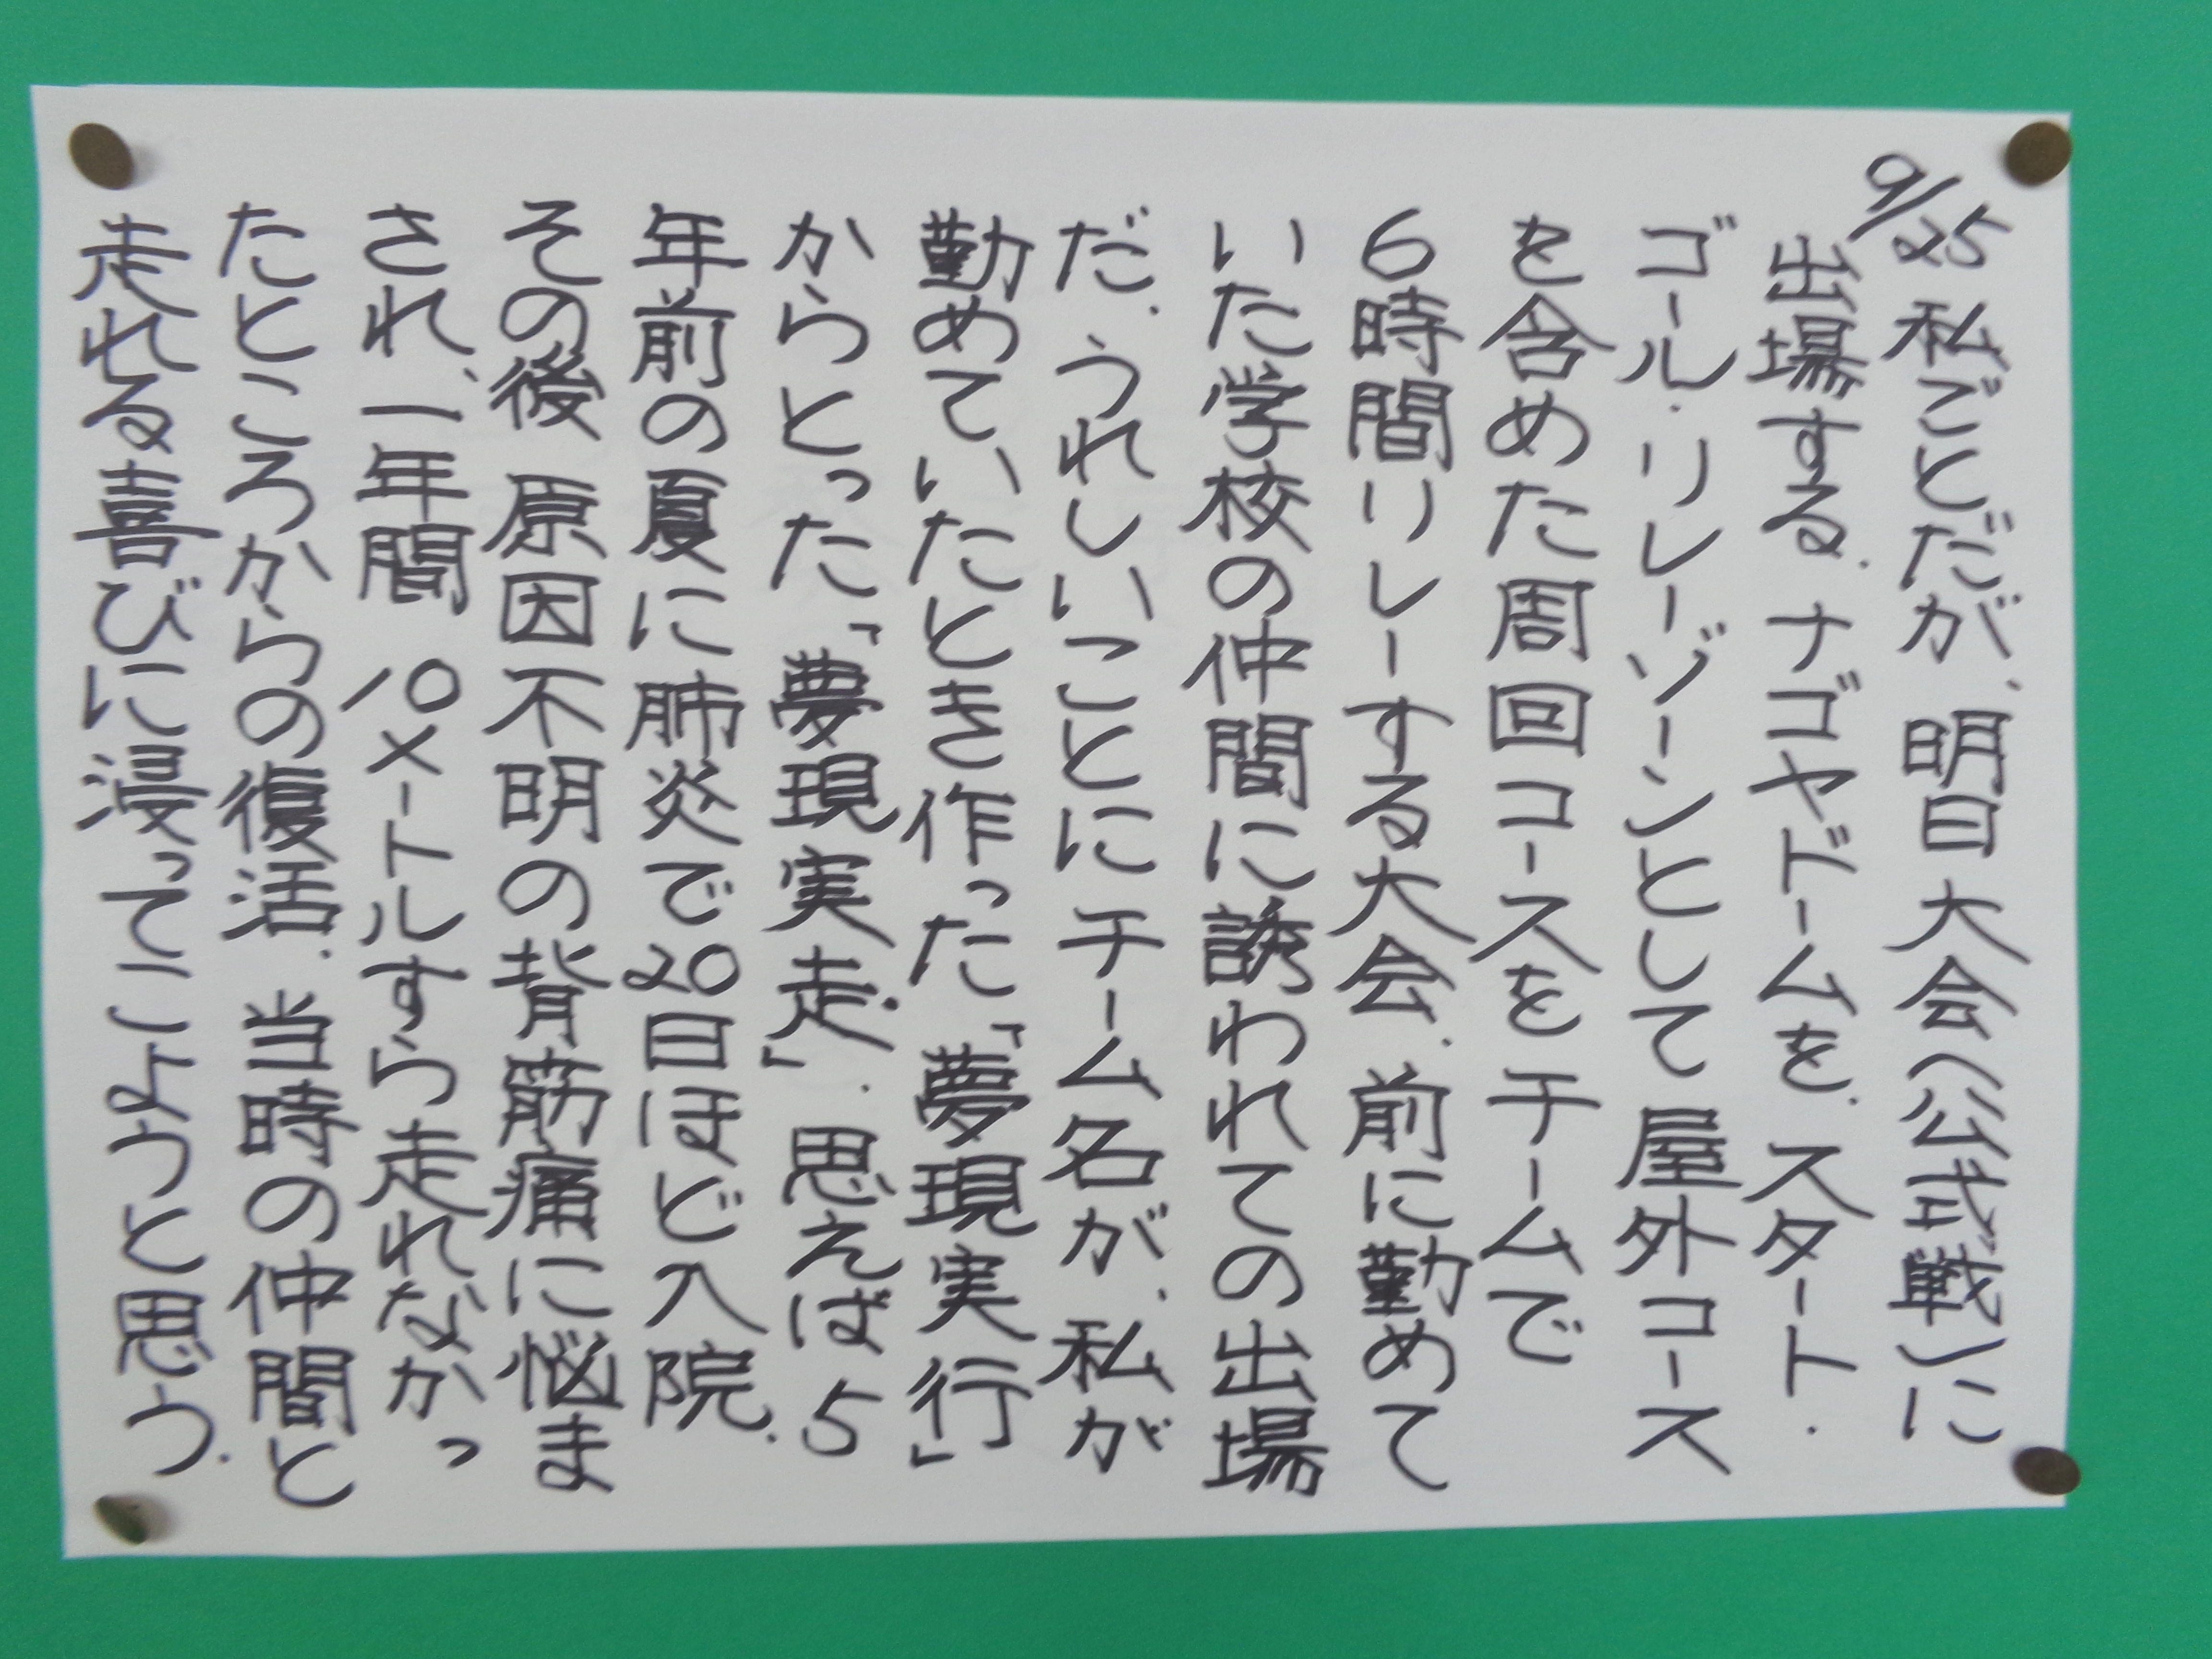 9/25 私ごとだが、明日大会(公式戦)に
出場する。ナゴヤドームを、スタート・
ゴール・リレーゾーンとして屋外コース
を含めた周回コースをチームで
6時間リレーする大会。前に勤めて
いた学校の仲間に誘われての出場
だ。うれしいことにチーム名が、私が
勤めていたとき作った「夢現実行」
からとった「夢現実走」。思えば5
年前の夏に肺炎で20日ほど入院。
その後原因不明の背筋痛に悩ま
され、一年間10メートルすら走れなかっ
たところからの復活。当時の仲間と
走れる喜びに浸ってこようと思う。